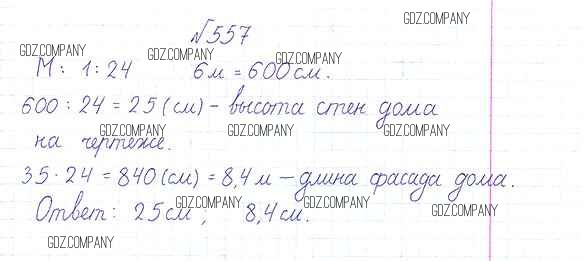 GDZ.COMPANY
№557
GDZ.COMPANY GDZ.COMPANY GDZ.COMPANY
М: 1:24 6м = 600см.
600 : 24 = 25 (см) - высота стен дома
GDZ.COMPANY GDZ.COMPANY GDZ.COMPANY
на чертеже.
35 · 24 = 840 (см) = 8,4 м - длина фасада дома.
GDZ.COMPANY GDZ.COMPANY GDZ.COMPANY
Ответ: 25см ; 8,4см.
GDZ.COMPANY